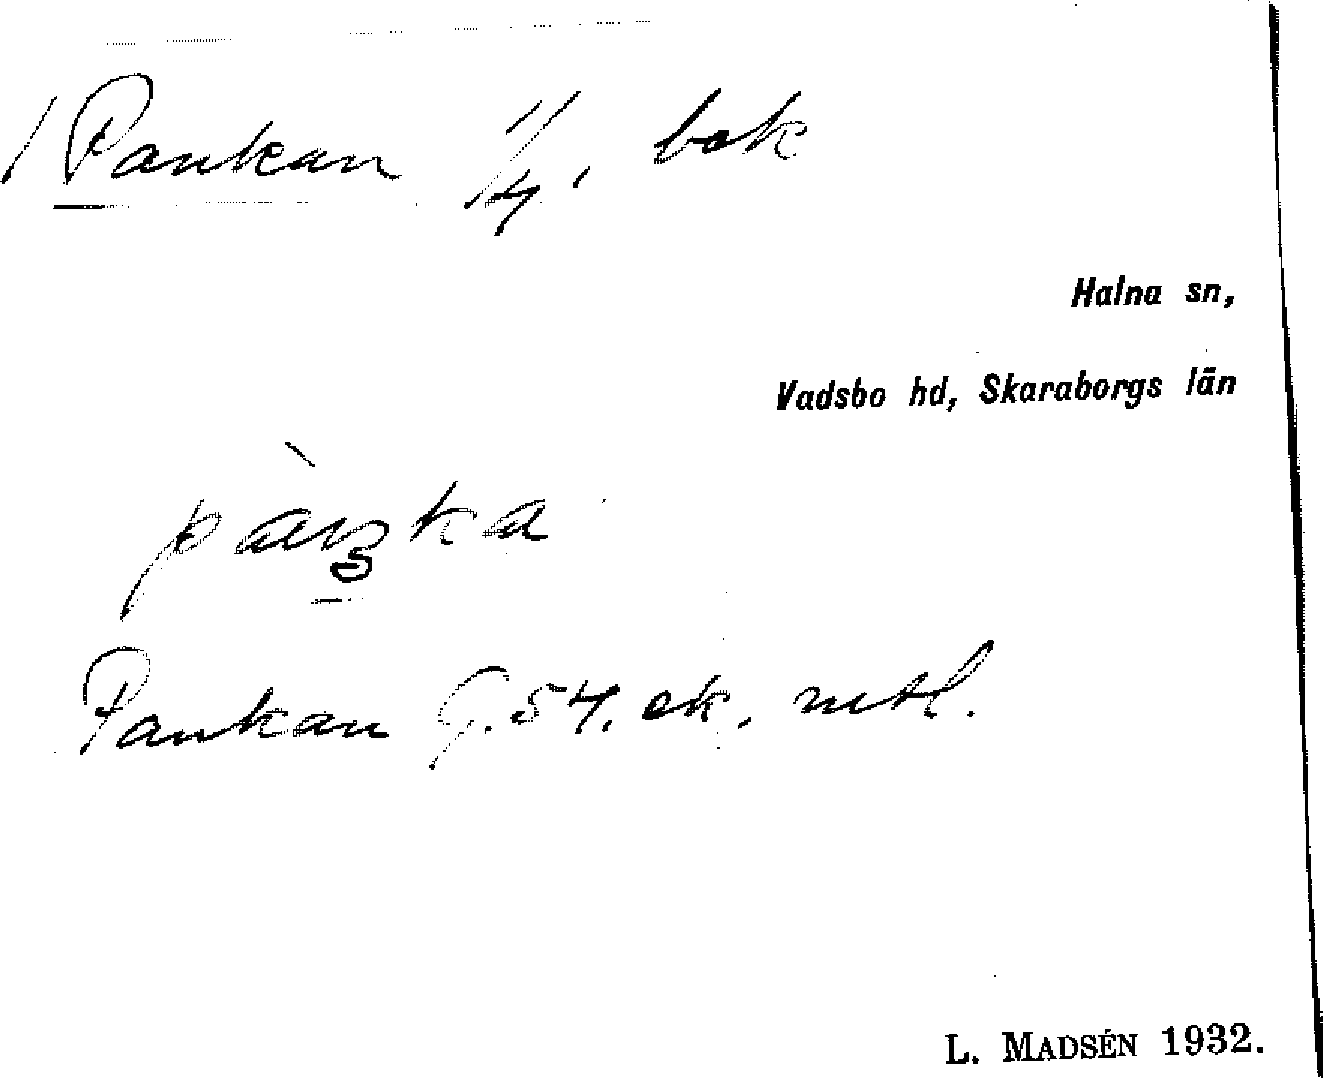 / Pankan 1/4, bok
Halna sn,
Vadsbo hd, Skaraborgs län
Pankan G. 54. ek. mtl.
L. MADSÉN 1932.